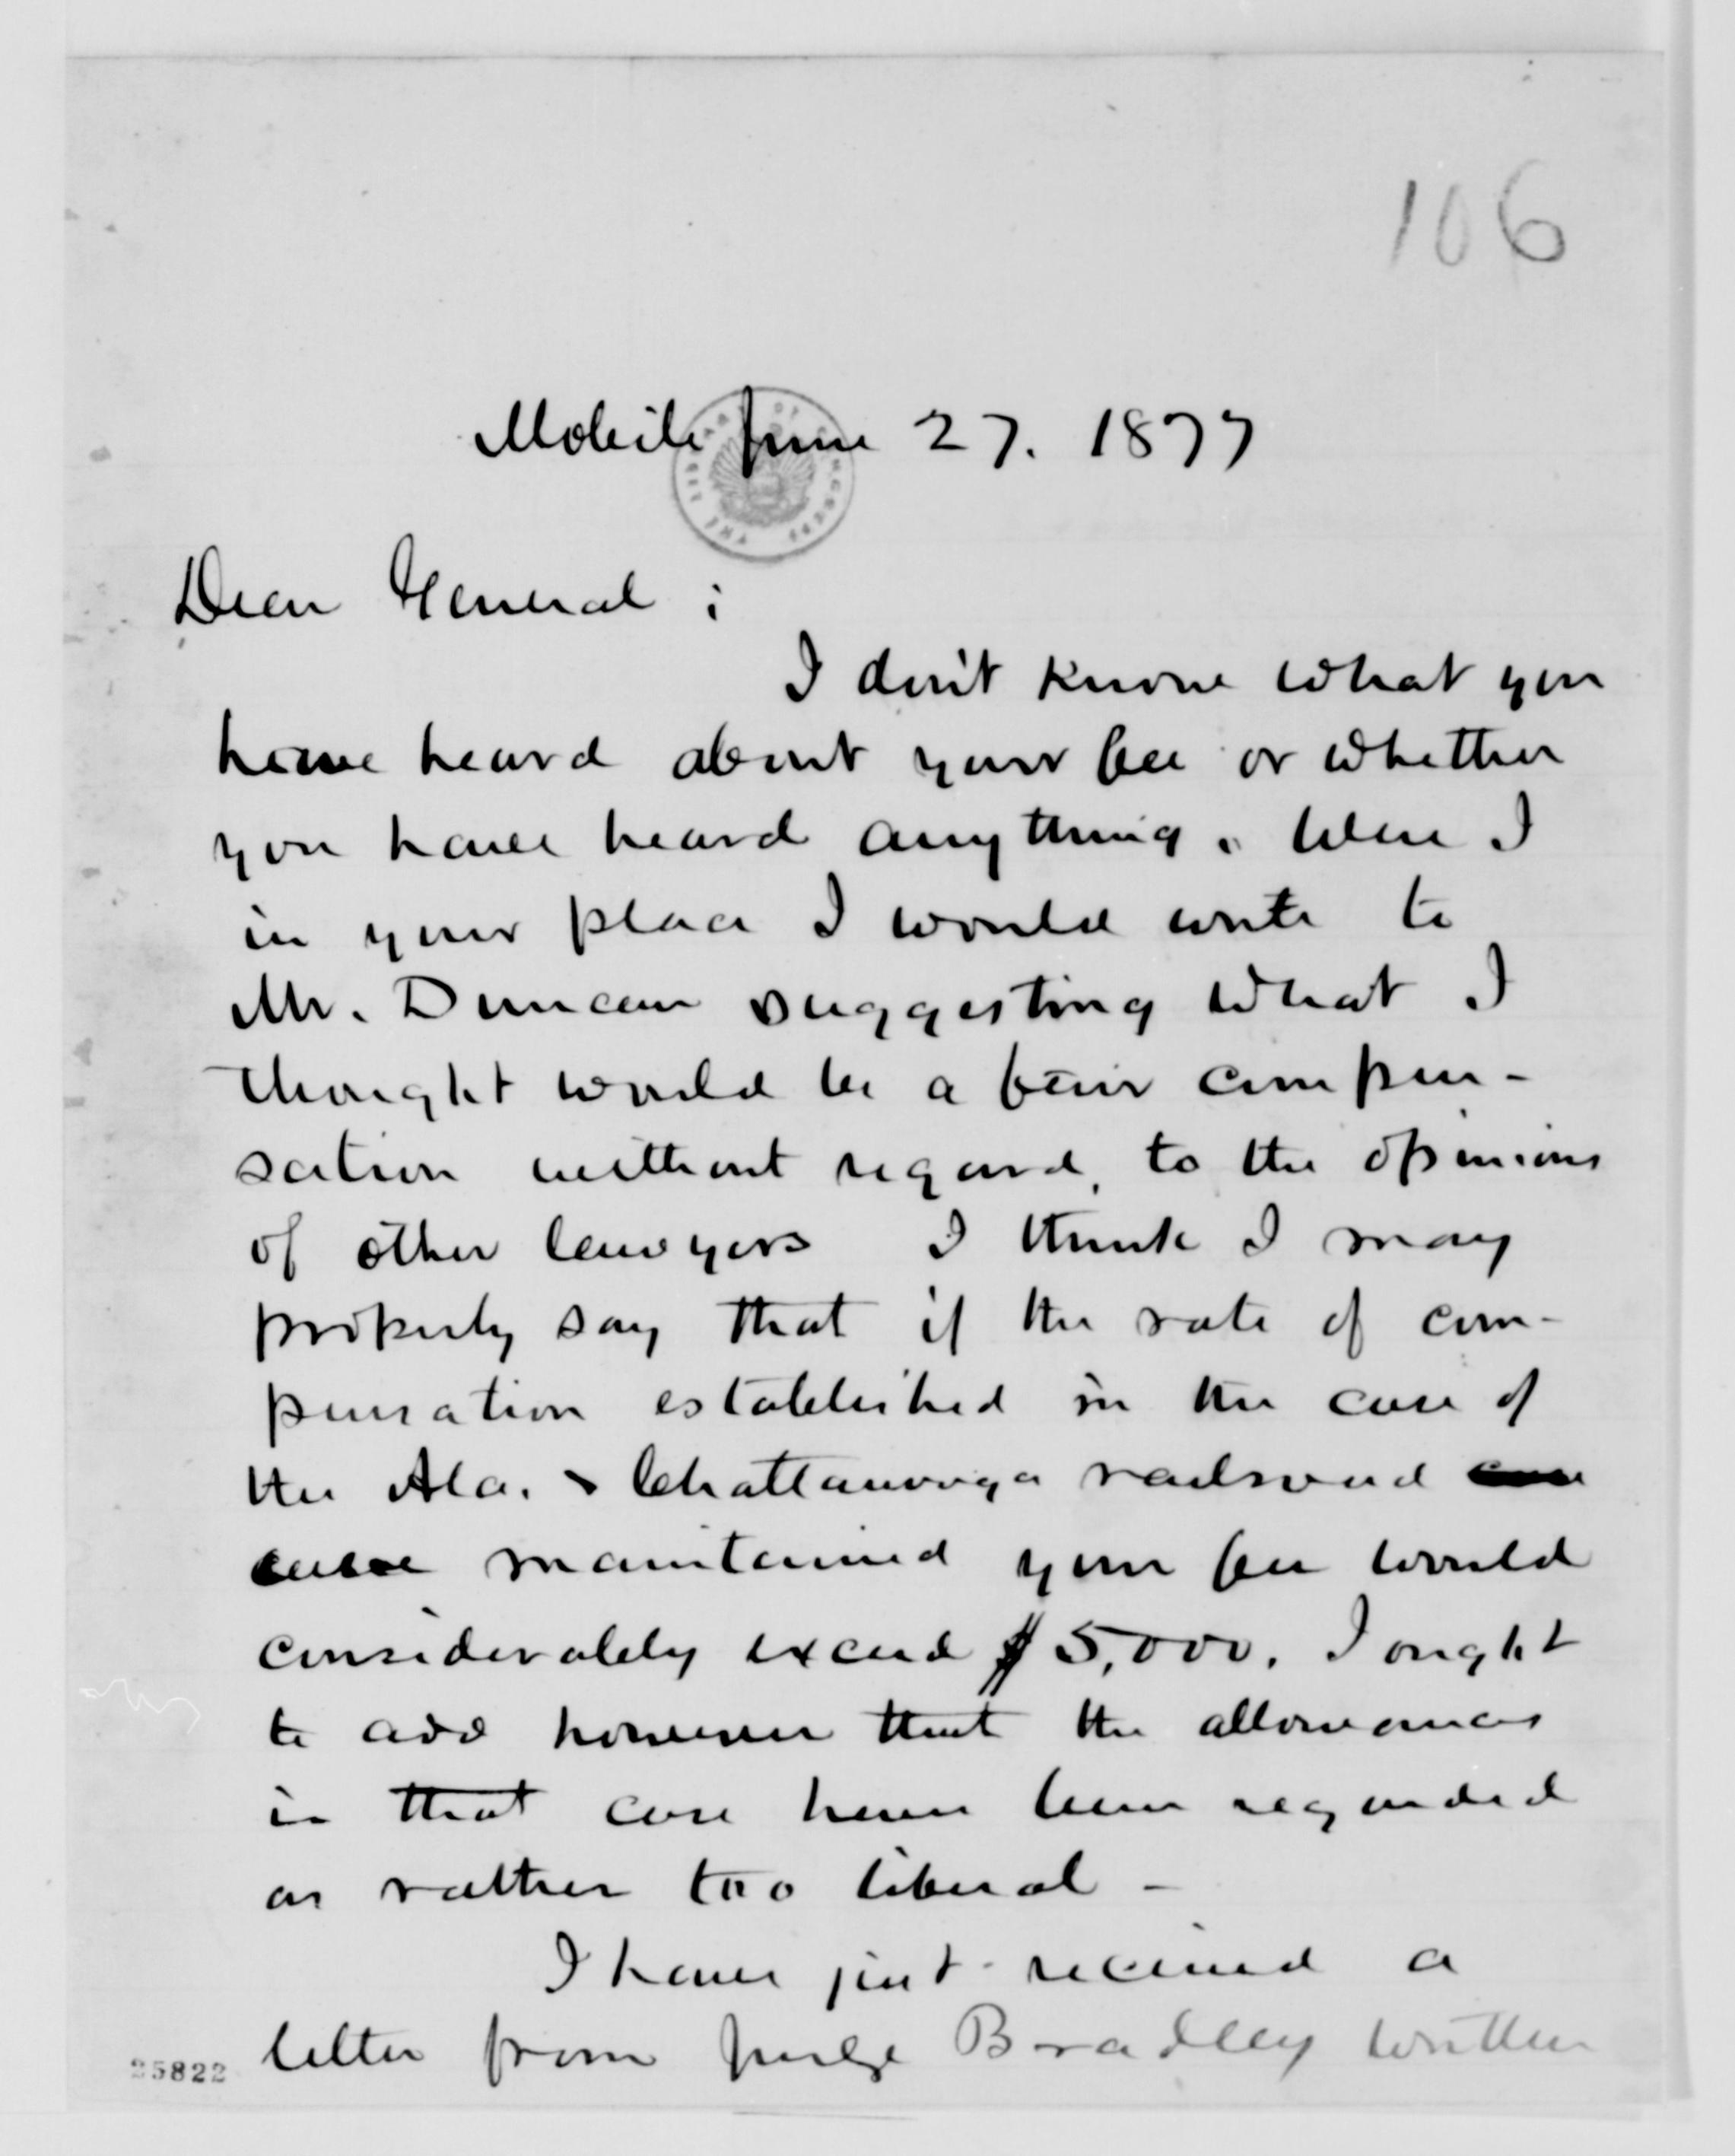 106
Mobile June 27. 1877
THE LIBRARY OF CONGRESS
Dear General :
I don't know what you
have heard about your fee or whether
you have heard anything. Were I
in your place I would write to
Mr. Duncan suggesting what I
thought would be a fair compen-
sation without regard to the opinions
of other lawyers I think I may
properly say that if the rate of com-
pensation established in the case of
the Ala. & Chattanooga railroad
maintained your fee would
considerably exceed $5,000. I ought
to add however that the allowances
in that case have been regarded
as rather too liberal -
I have just received a
letter from Judge Bradley written
25822